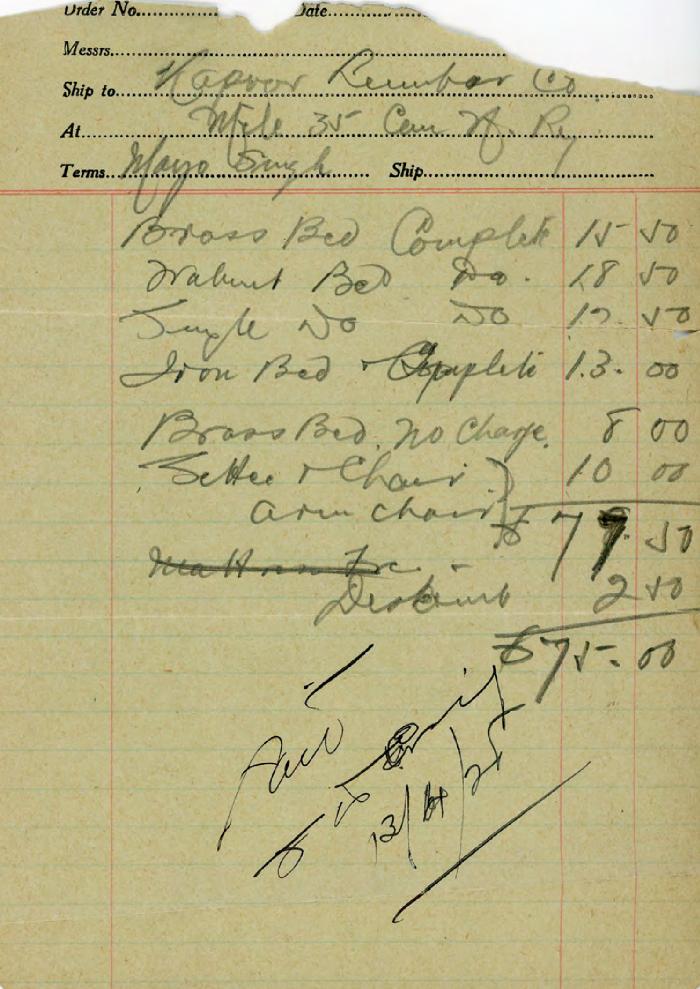 Order No. Date
Messrs.
Ship to Kapoor Lumber Co
At Mile 35 Can N. Ry
Terms Mayo Singh Ship
Brass Bed Complete 15 50
Walnut Bed Do. 18 50
Single Do Do 12 50
Iron Bed Complete 13. 00
Brass Bed. No Charge. 8 00
Settee & Chair 10 00
arm chair $77.50
Discount 2 50
$75.00
Paid
13/4/25